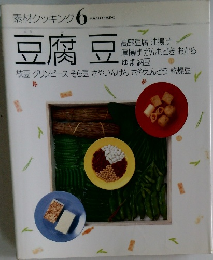 素材クッキング6
豆腐 豆
高野豆腐 油揚げ
厚揚げ がんもどき おから
ゆば 納豆
枝豆 グリンピース そら豆 さやいんげん さやえんどう 絹さや